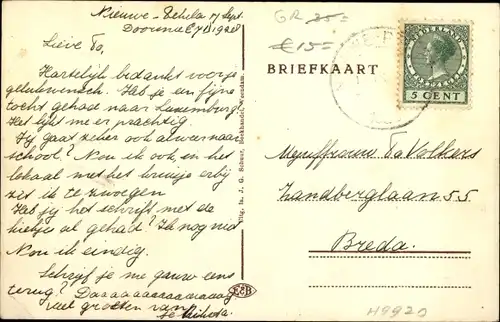 Nieuwe-Pekela 17 Sept.
1928
Lieve To,
Hartelijk bedankt voor je
gelukwensch. Heb je een fijne
tocht gehad naar Luxemburg?
Het lijkt me er prachtig.
Jij gaat zeker ook alweer naar
school? Nou ik ook, en het
lokaal met het kruisje erbij
zit ik te zwoegen
Heb jij het schrift met de
liedjes al gehad? Ik nog niet
Nou ik eindig.
Schrijf je me gauw eens
terug? Daaaaaaaaaaaaaag
veel groeten van
Uitg. In. J. G. Schuur, Boekhandel, Veendam.
GR 35=
€ 15=
BRIEFKAART
NEDERLAND
5 CENT
Mejuffrouw To Volkers
Zandberglaan 55
Breda.
EcB